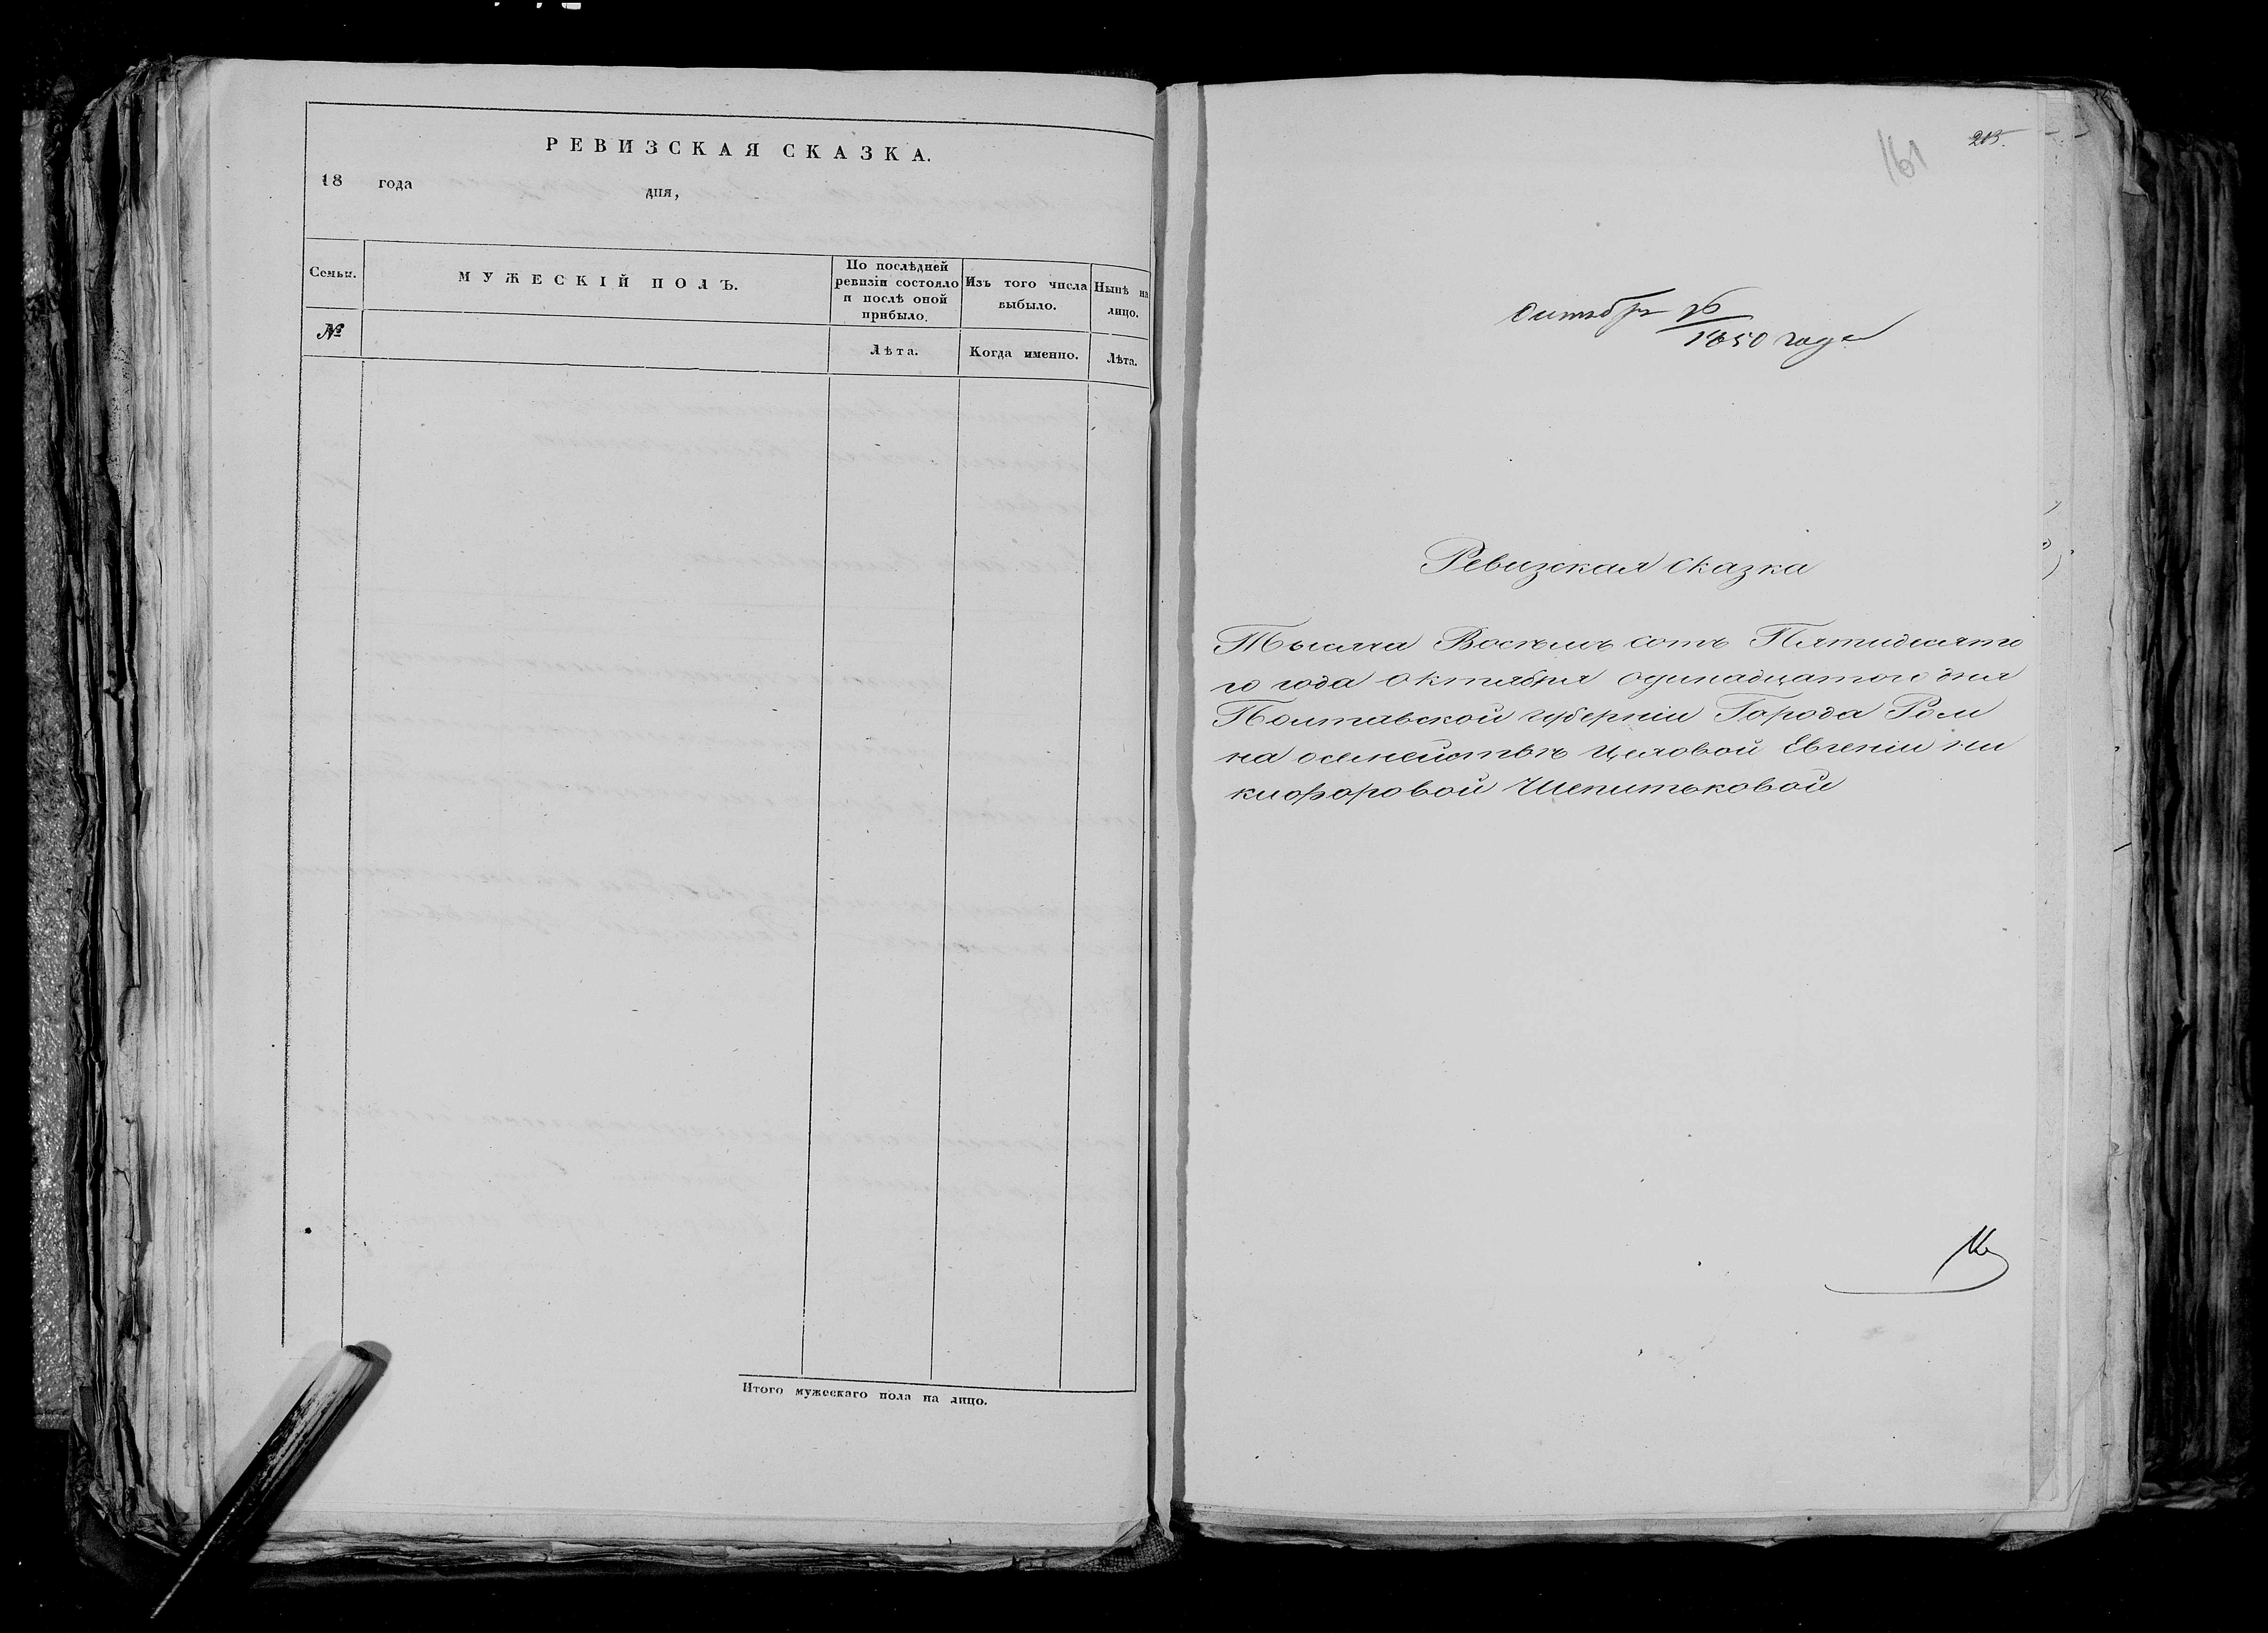 РЕВИЗСКАЯ СКАЗКА.
18 года дня,
Семьи.
МУЖЕСКІЙ ПОЛЪ.
По послѣдней
ревизіи состояло
и послѣ оной
прибыло.
Изъ того числа
выбыло.
Нынѣ на
лицо.
№
Лѣта.
Когда именно.
Лѣта.
Итого мужескаго пола на лицо.
161
октября 26
1850 года
Ревизская сказка
Тысяча Восемь сотъ Пятидесято
го года октября одинадцатого дня
Полтавской губерніи Города Ром
на осемействѣ Цеховой Евгеніи ни
кифоровой Шепитьковой